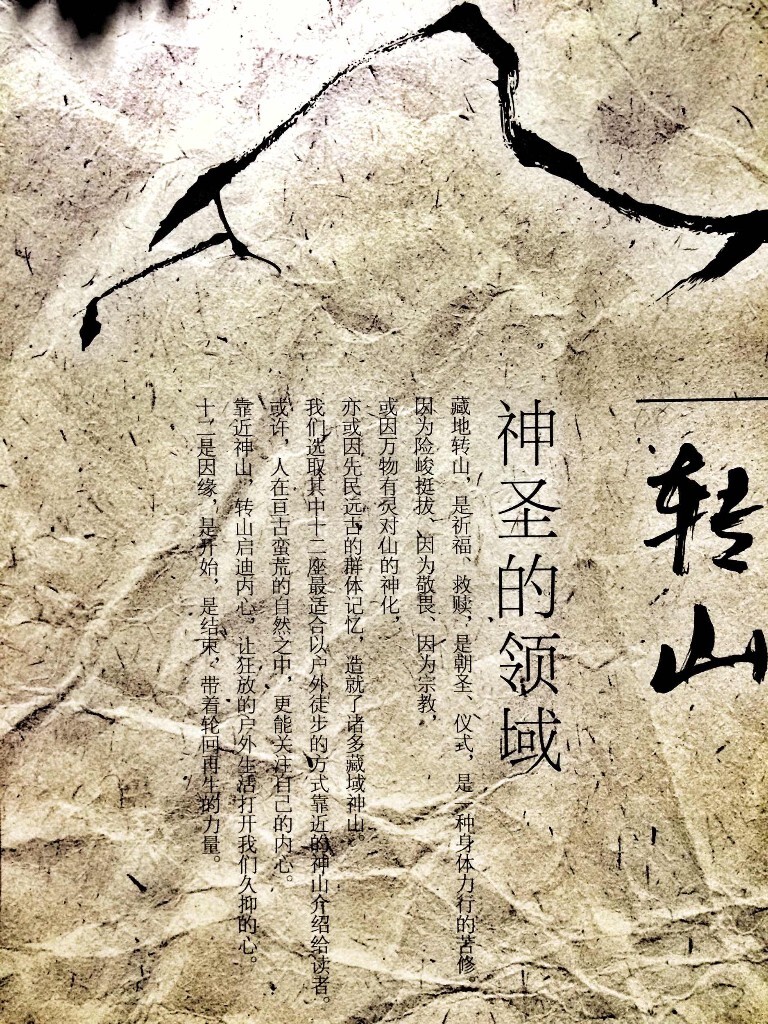 转山
神圣的领域
藏地转山，是祈福、救赎，是朝圣、仪式，是一种身体力行的苦修。
因为险峻挺拔、因为敬畏、因为宗教，
或因万物有灵对仙的神化，
亦或因先民远古的群体记忆，造就了诸多藏域神山。
我们选取其中十二座最适合以户外徒步的方式靠近的神山介绍给读者。
或许，人在亘古蛮荒的自然之中，更能关注自己的内心。
靠近神山，转山启迪内心，让狂放的户外生活打开我们久抑的心。
十二是因缘，是开始，是结束，带着轮回再生的力量。